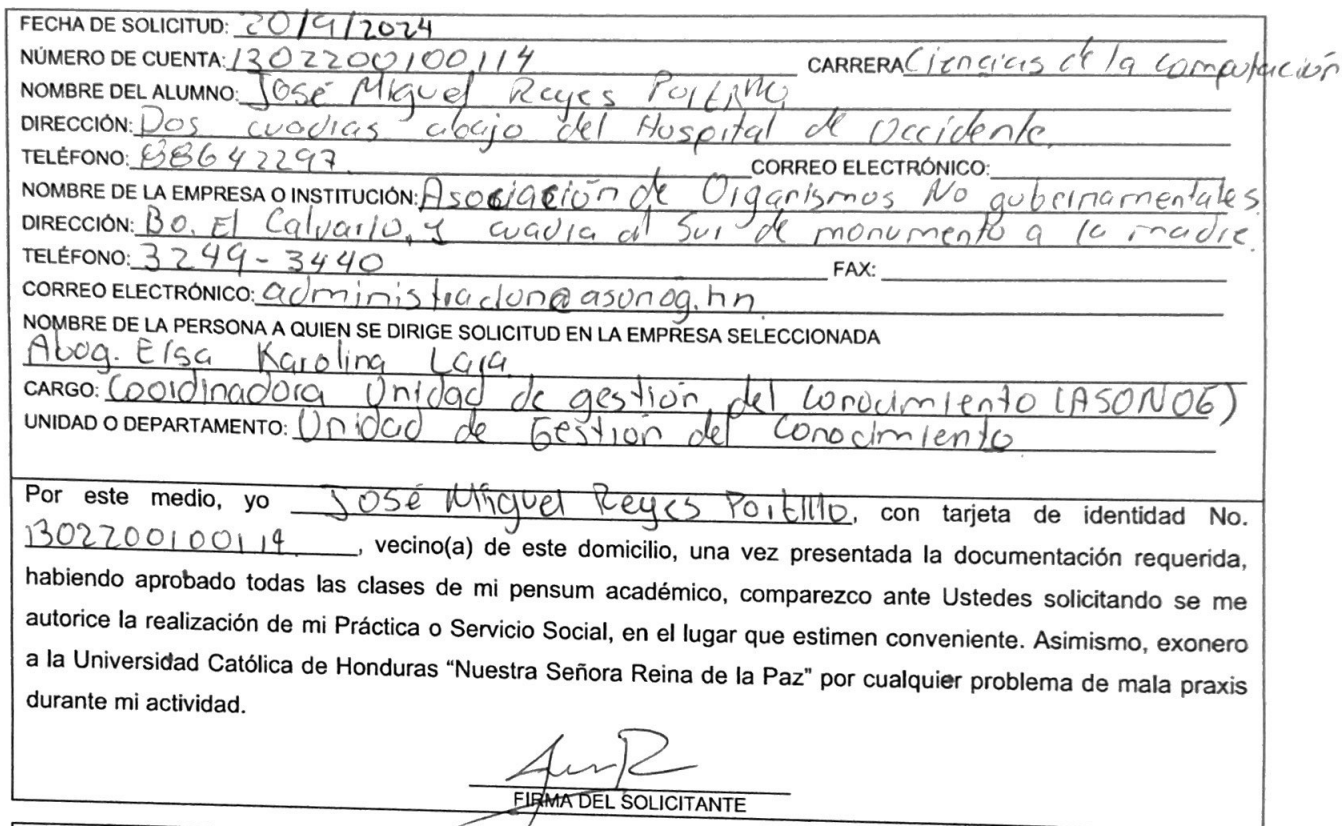 FECHA DE SOLICITUD: 20/9/2024
NÚMERO DE CUENTA: 1302200100114 CARRERA Ciencias de la computación
NOMBRE DEL ALUMNO: José Miguel Reyes Portillo
DIRECCIÓN: Dos cuadras abajo del Hospital de Occidente.
TELÉFONO: 88642297 CORREO ELECTRÓNICO:
NOMBRE DE LA EMPRESA O INSTITUCIÓN: Asociación de Organismos No gubernamentales
DIRECCIÓN: Bo. El Calvario, 1 cuadra al Sur de monumento a la madre.
TELÉFONO: 3249-3440 FAX:
CORREO ELECTRÓNICO: administracion@asonog.hn
NOMBRE DE LA PERSONA A QUIEN SE DIRIGE SOLICITUD EN LA EMPRESA SELECCIONADA
Abog. Elsa Karolina Lara
CARGO: Coordinadora Unidad de gestión del conocimiento (ASONOG)
UNIDAD O DEPARTAMENTO: Unidad de Gestión del Conocimiento
Por este medio, yo José Miguel Reyes Portillo, con tarjeta de identidad No.
1302200100114, vecino(a) de este domicilio, una vez presentada la documentación requerida,
habiendo aprobado todas las clases de mi pensum académico, comparezco ante Ustedes solicitando se me
autorice la realización de mi Práctica o Servicio Social, en el lugar que estimen conveniente. Asimismo, exonero
a la Universidad Católica de Honduras “Nuestra Señora Reina de la Paz” por cualquier problema de mala praxis
durante mi actividad.
FIRMA DEL SOLICITANTE